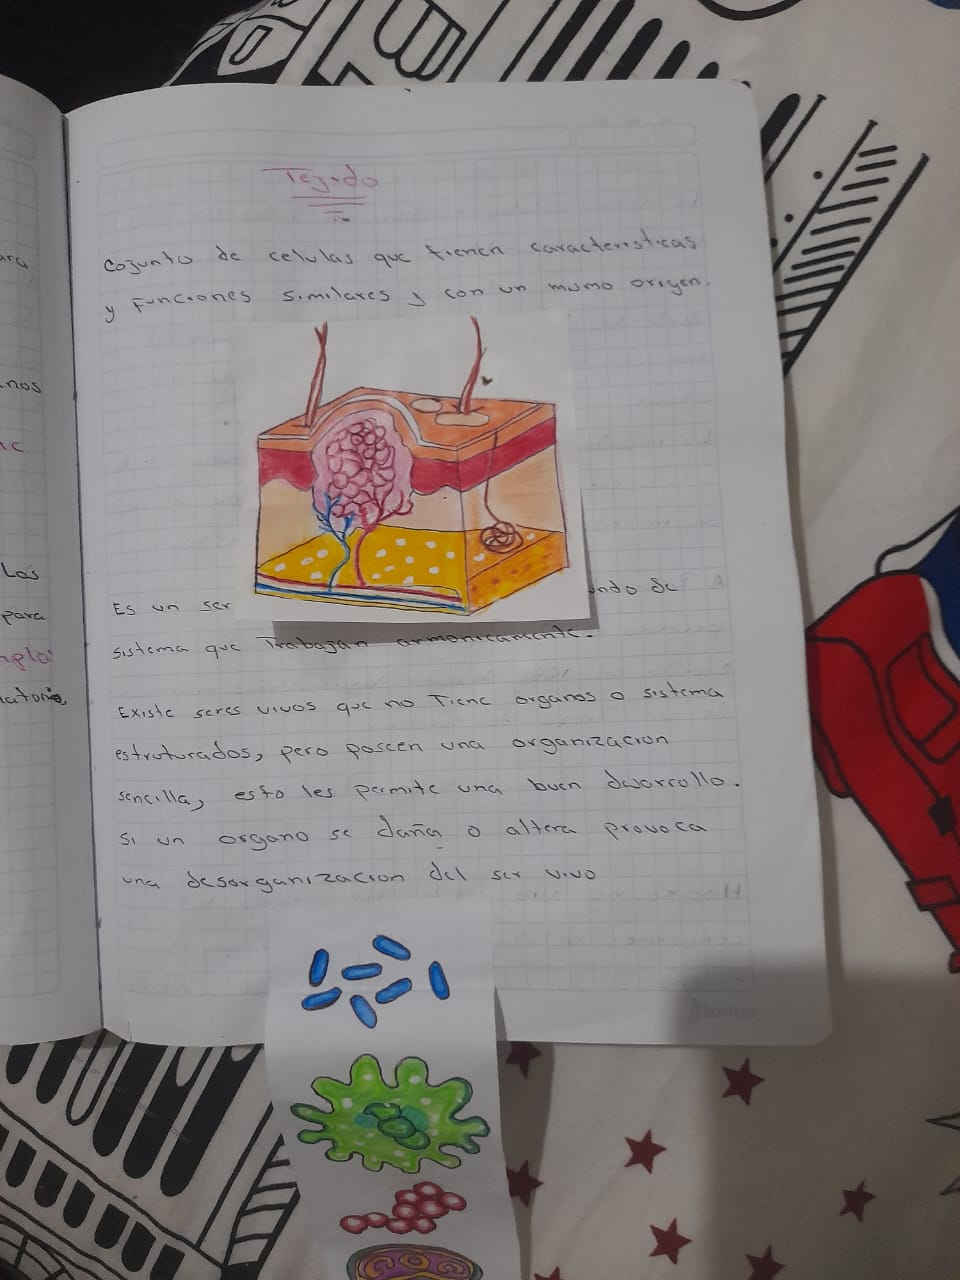 ara
nos
Los
para
Tejido
Cojunto de celulas que tienen caracteristicas
y Funciones similares y con un mismo origen.
Es un ser
ando de
sistema que Trabajan armonicamente.
Existe seres vivos que no Tiene organos o sistema
estruturados, pero poseen una organizacion
sencilla, esto les permite una buen desorrollo.
Si un organo se daña o altera provoca
una desorganizacion del ser vivo
Norma